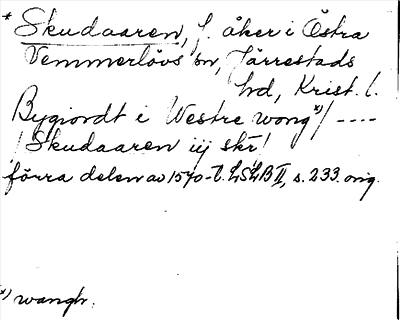 * Skudaaren, f. åker i Östra
Vemmerlövs sn, Järrestads
hd, Krist. l.
Bygiordt i Westre wong x)/ ----
/ Skudaaren iij skr/
förra delen av 1570-t. LSLB II, s. 233. orig.
x) wangh.